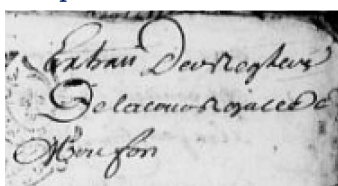 Extrait Des Registres
De la cour Royalle De
Moufon